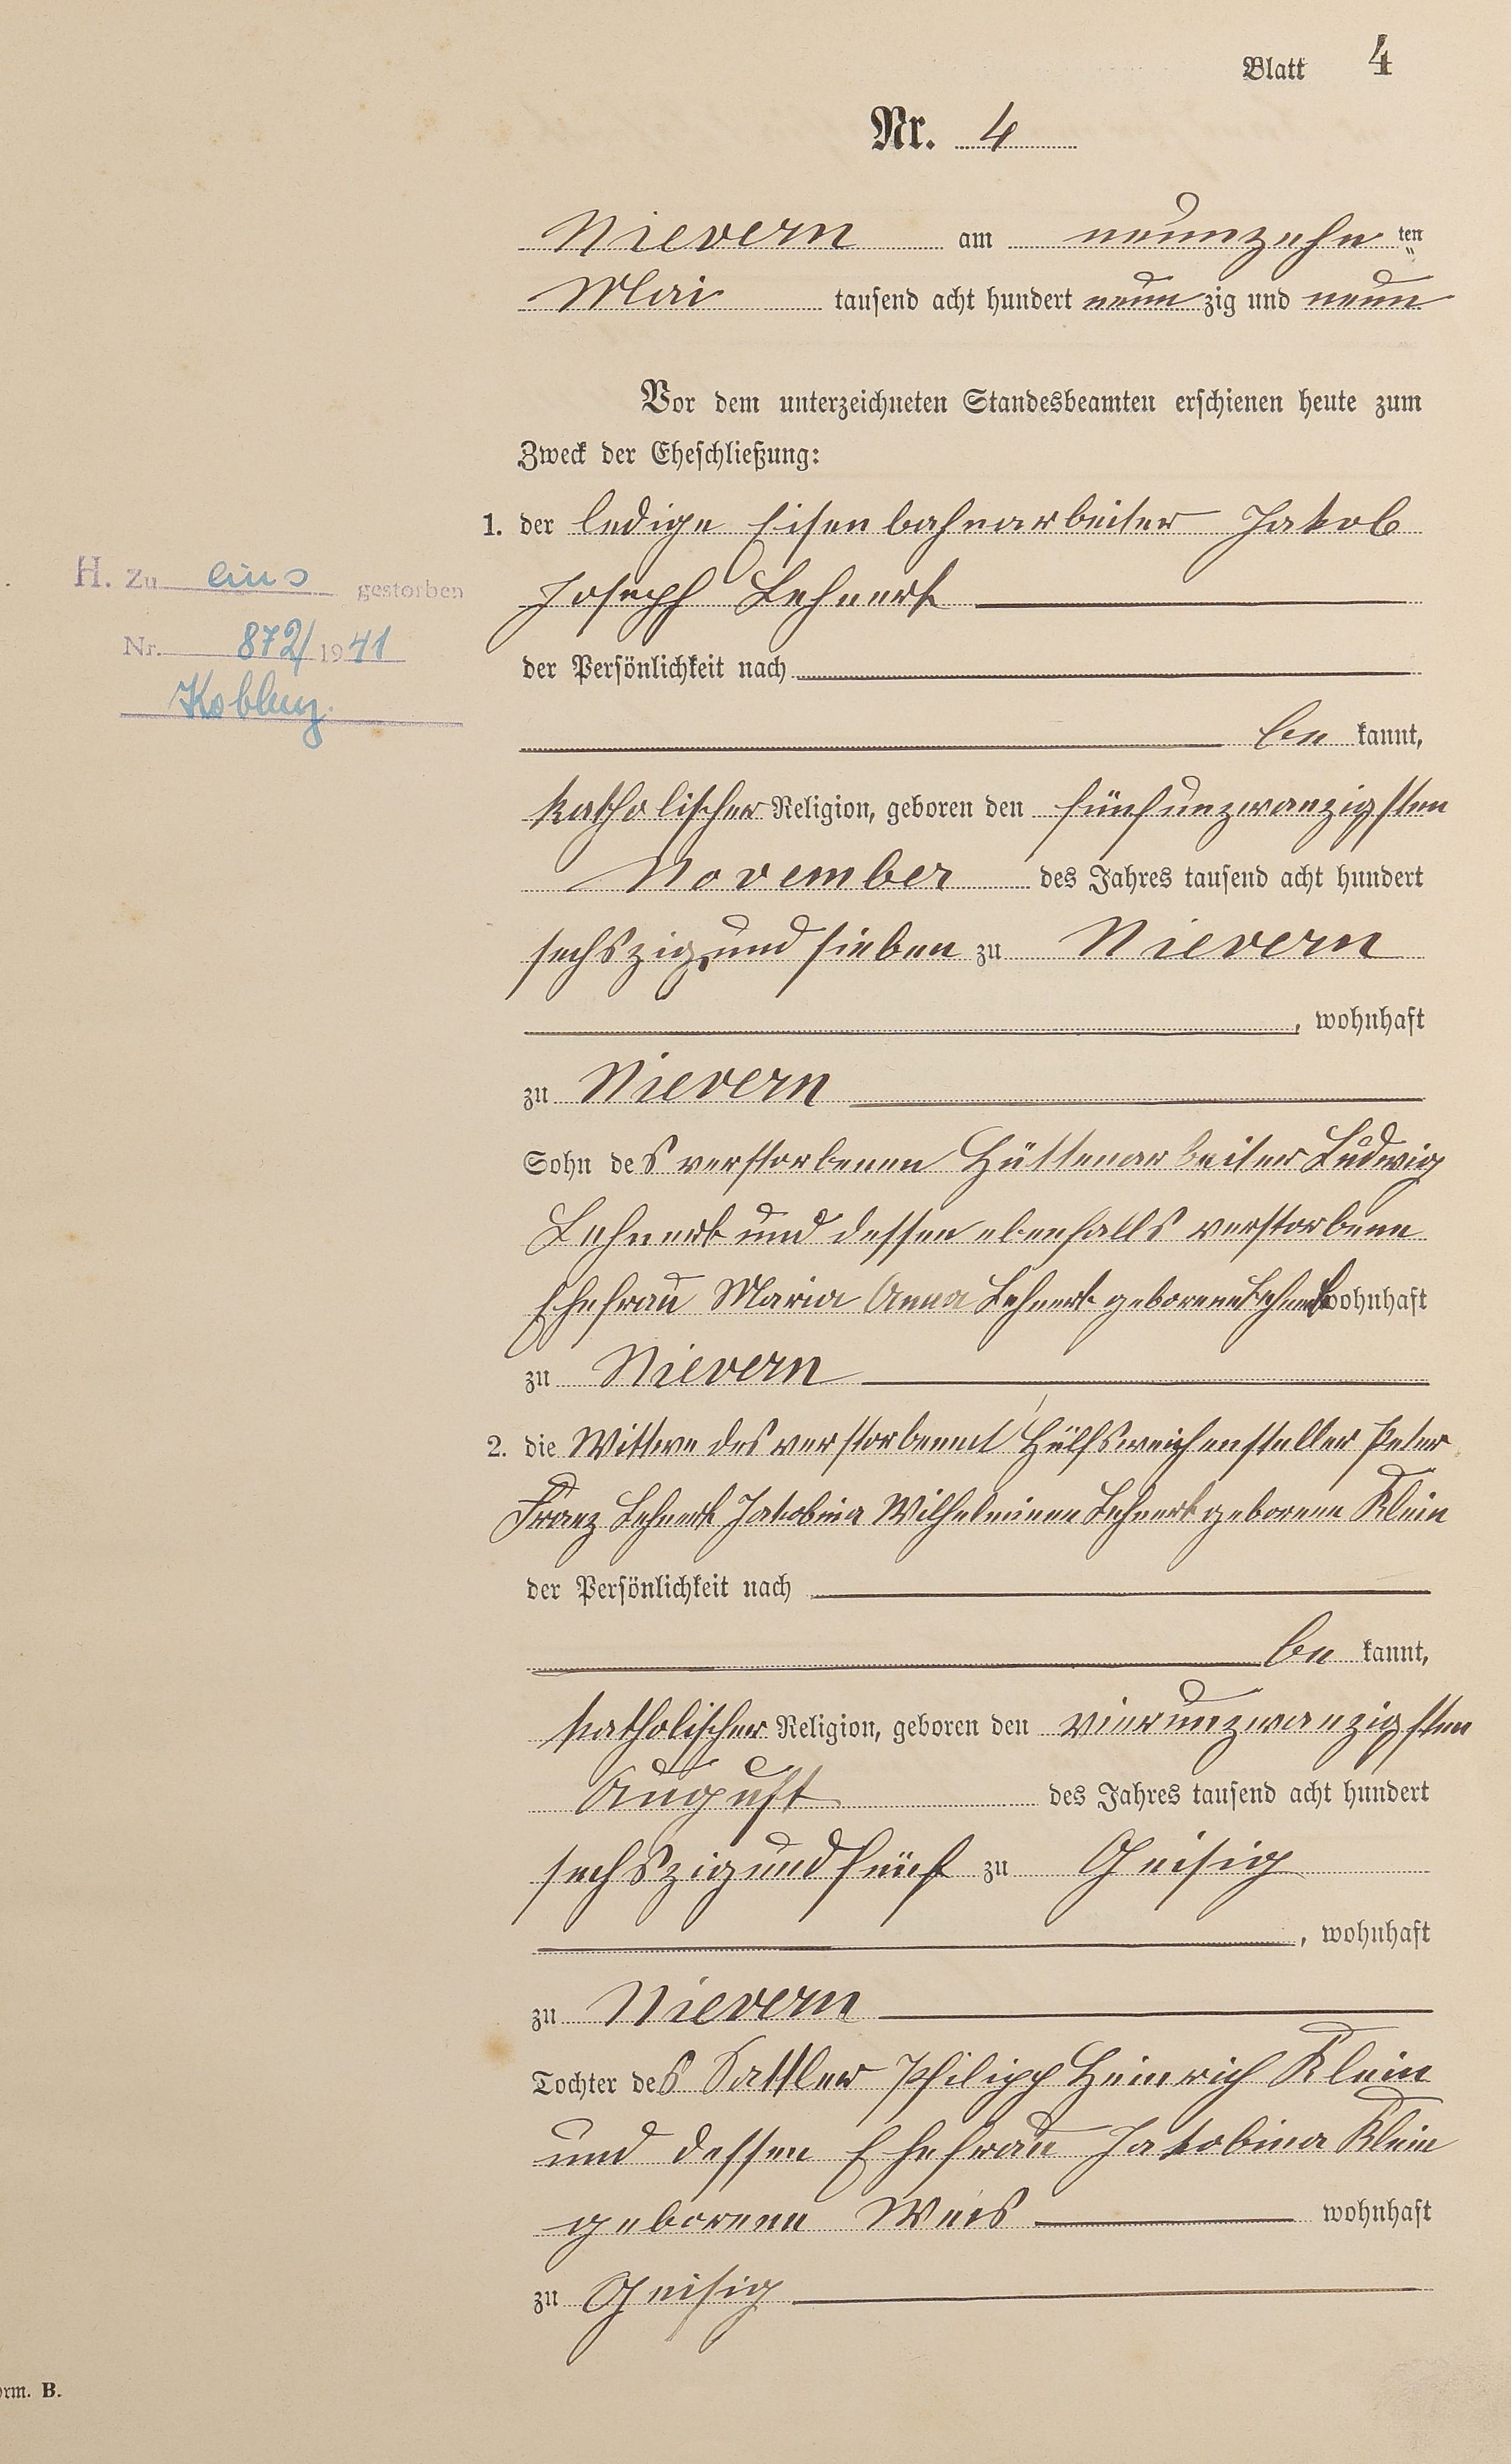 Blatt 4
Nr. 4
Nievern am neunzehn ten
Mai tausend acht hundert neunzig und neun
Vor dem unterzeichneten Standesbeamten erschienen heute zum
Zweck der Eheschließung:
1. der ledige Eisenbahnarbeiter Jakob
Joseph Lehnert
H. Zu eins gestorben
Nr. 872/1941
Koblenz.
der Persönlichkeit nach
be kannt,
katholischer Religion, geboren den fünfunzwanzigsten
November des Jahres tausend acht hundert
sechszig und sieben zu Nievern
, wohnhaft
zu Nievern
Sohn des verstorbenen Hüttenarbeiter Ludwig
Lehnert und dessen ebenfalls verstorbene
Ehefrau Maria Anna Lehnert geborene Lehnert wohnhaft
zu Nievern
2. die Wittwe des verstorbenen Hülfsweichensteller Peter
Franz Lehnert Jakobina Wilhelmine Lehnert geborene Klein
der Persönlichkeit nach
be kannt,
katholischer Religion, geboren den vierunzwanzigsten
August des Jahres tausend acht hundert
sechszig und fünf zu Geisig
, wohnhaft
zu Nievern
Tochter des Sattler Philipp Heinrich Klein
und dessen Ehefrau Jakobina Klein
geborene Weis wohnhaft
zu Geisig
orm. B.